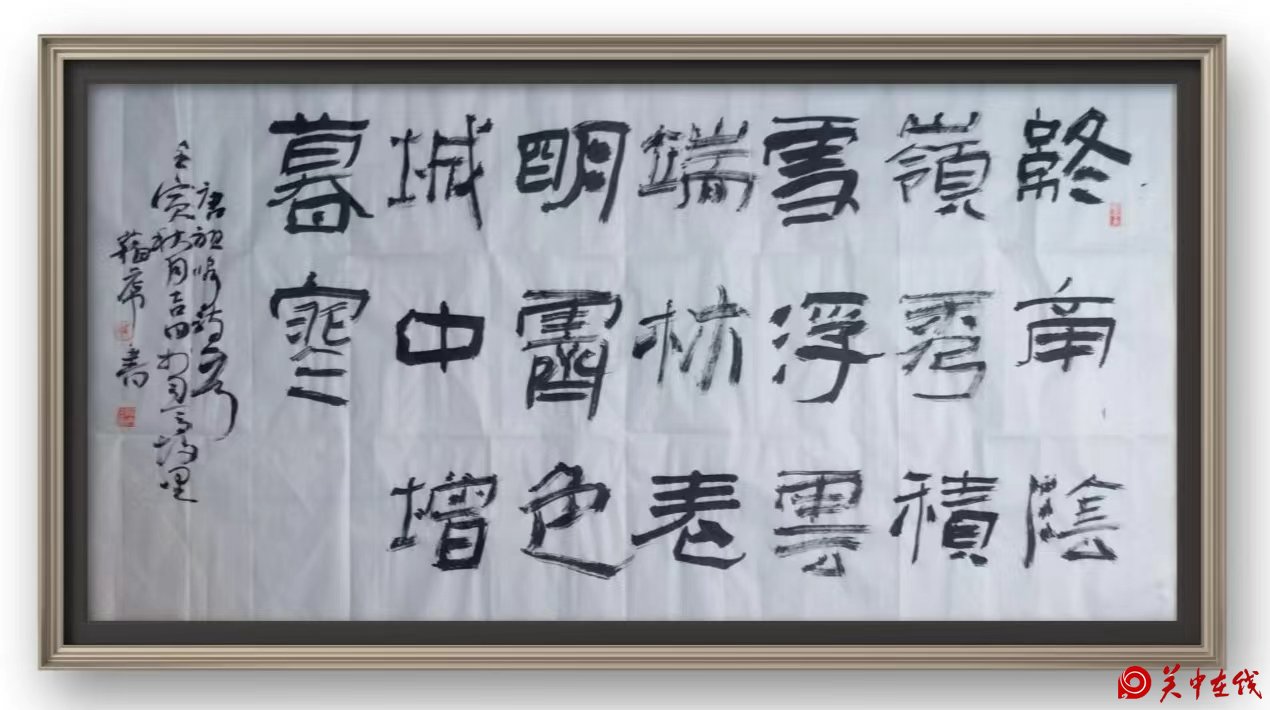 終南陰
嶺秀積
雪浮雲
端林表
明霽色
城中增
暮寒
唐祖咏詩
壬寅秋月吉日
書
关中在线